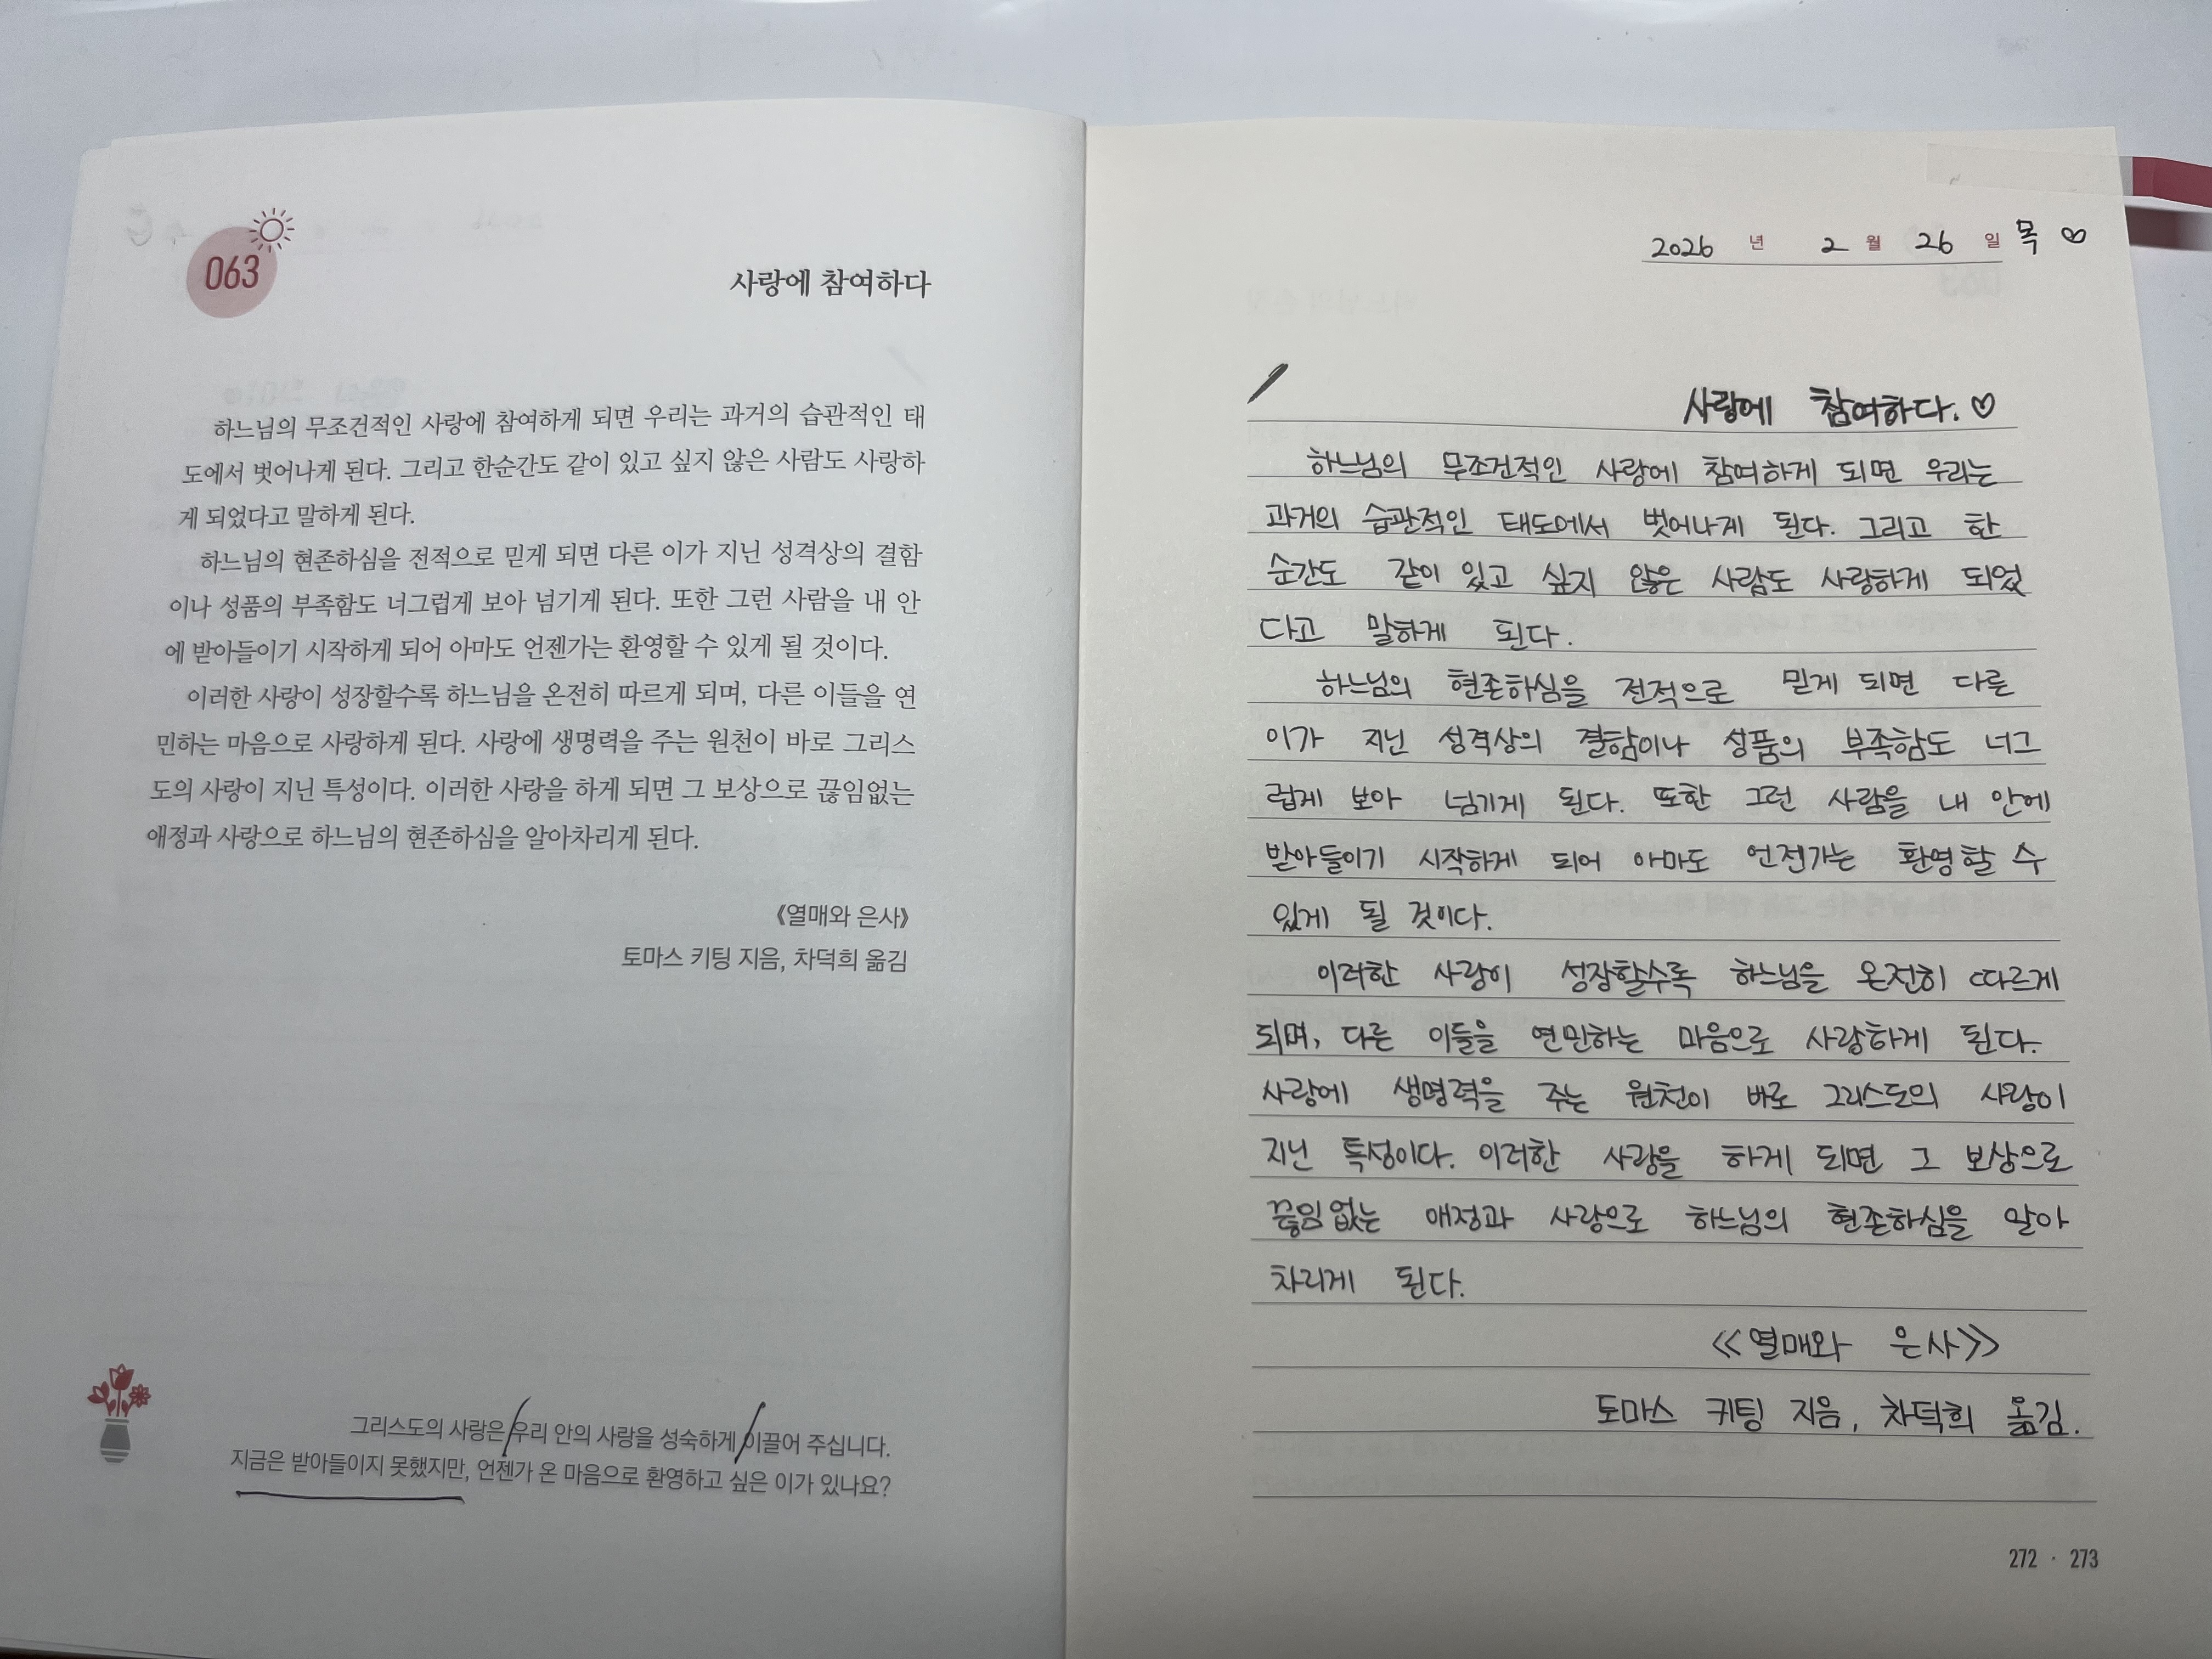 063
사랑에 참여하다
하느님의 무조건적인 사랑에 참여하게 되면 우리는 과거의 습관적인 태
도에서 벗어나게 된다. 그리고 한순간도 같이 있고 싶지 않은 사람도 사랑하
게 되었다고 말하게 된다.
하느님의 현존하심을 전적으로 믿게 되면 다른 이가 지닌 성격상의 결함
이나 성품의 부족함도 너그럽게 보아 넘기게 된다. 또한 그런 사람을 내 안
에 받아들이기 시작하게 되어 아마도 언젠가는 환영할 수 있게 될 것이다.
이러한 사랑이 성장할수록 하느님을 온전히 따르게 되며, 다른 이들을 연
민하는 마음으로 사랑하게 된다. 사랑에 생명력을 주는 원천이 바로 그리스
도의 사랑이 지닌 특성이다. 이러한 사랑을 하게 되면 그 보상으로 끊임없는
애정과 사랑으로 하느님의 현존하심을 알아차리게 된다.
《열매와 은사》
토마스 키팅 지음, 차덕희 옮김
그리스도의 사랑은 우리 안의 사랑을 성숙하게 이끌어 주십니다.
지금은 받아들이지 못했지만, 언젠가 온 마음으로 환영하고 싶은 이가 있나요?
2026 년 2 월 26 일 목 ♡
사랑에 참여하다. ♡
하느님의 무조건적인 사랑에 참여하게 되면 우리는
과거의 습관적인 태도에서 벗어나게 된다. 그리고 한
순간도 같이 있고 싶지 않은 사람도 사랑하게 되었
다고 말하게 된다.
하느님의 현존하심을 전적으로 믿게 되면 다른
이가 지닌 성격상의 결함이나 성품의 부족함도 너그
럽게 보아 넘기게 된다. 또한 그런 사람을 내 안에
받아들이기 시작하게 되어 아마도 언젠가는 환영할 수
있게 될 것이다.
이러한 사랑이 성장할수록 하느님을 온전히 따르게
되며, 다른 이들을 연민하는 마음으로 사랑하게 된다.
사랑에 생명력을 주는 원천이 바로 그리스도의 사랑이
지닌 특성이다. 이러한 사랑을 하게 되면 그 보상으로
끊임없는 애정과 사랑으로 하느님의 현존하심을 알아
차리게 된다.
<<열매와 은사>>
토마스 키팅 지음, 차덕희 옮김.
272 · 273